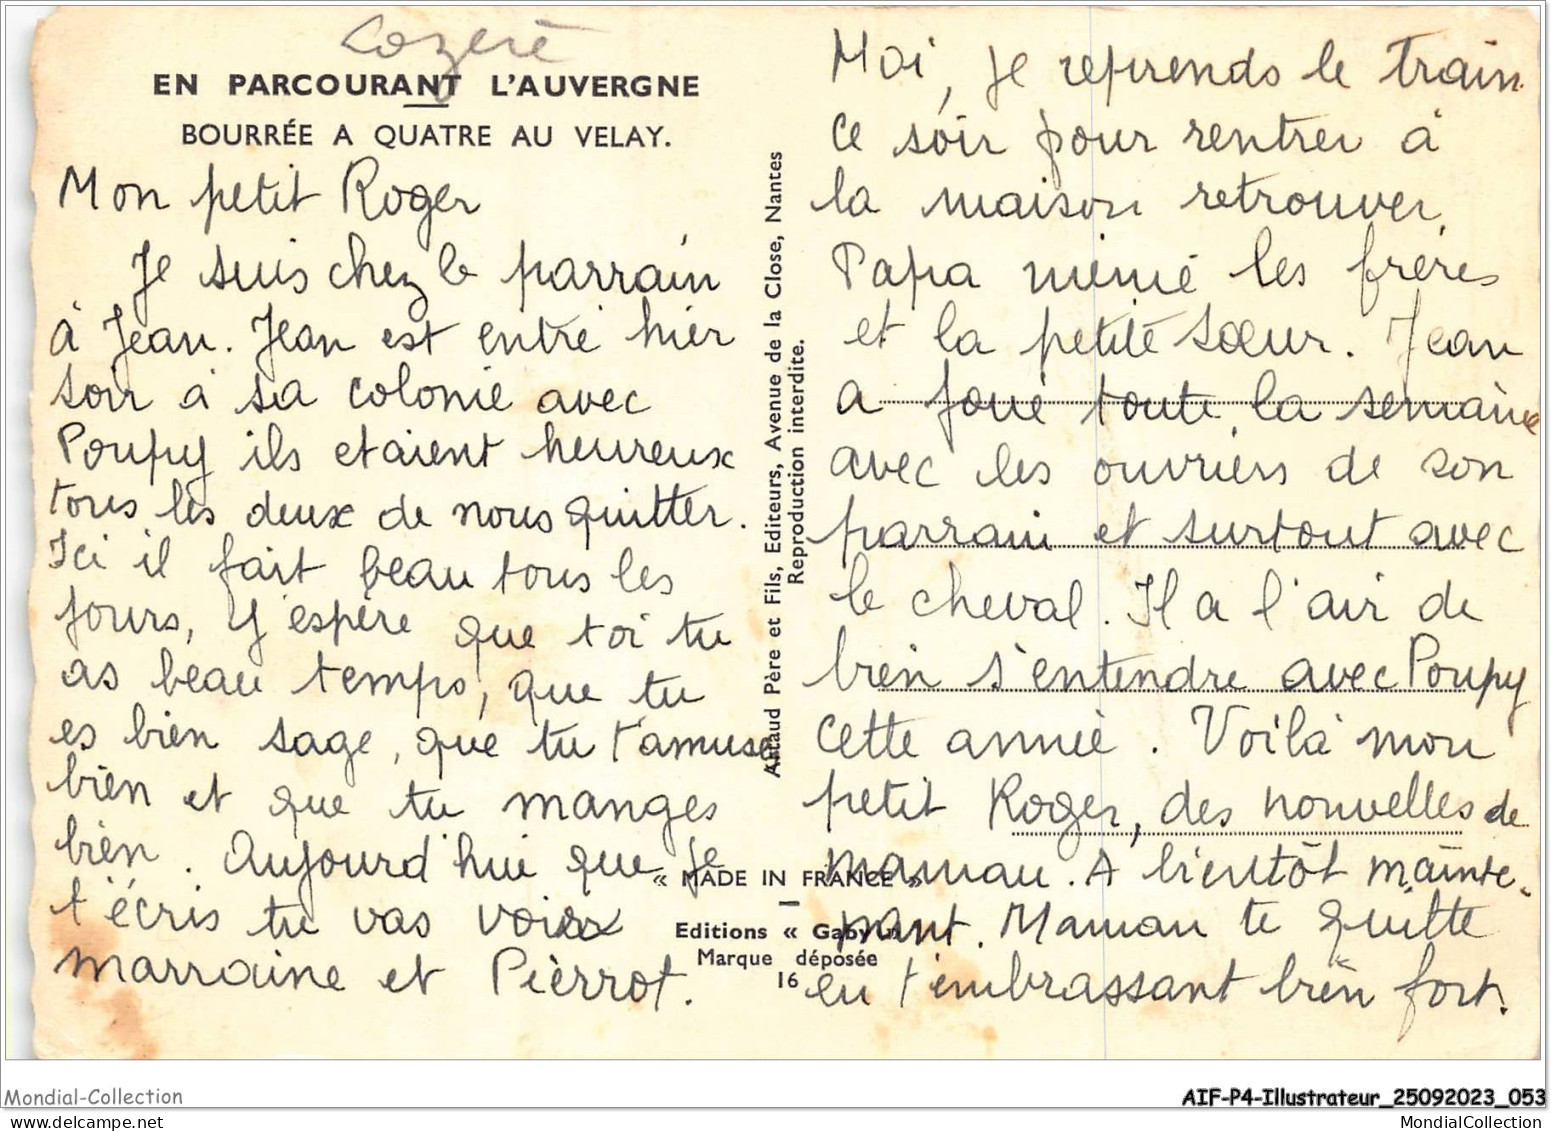 Lozère
EN PARCOURANT L'AUVERGNE
BOURRÉE A QUATRE AU VELAY.
Mon petit Roger
Je suis chez le parrain
à Jean. Jean est entré hier
soir à sa colonie avec
Poupy ils etaient heureux
tous les deux de nous quitter.
Ici il fait beau tous les
jours, j'espère que toi tu
as beau temps, que tu
es bien sage, que tu t'amuse
bien et que tu manges
bien. Aujourd'hui que je
t'écris tu vas voir
marraine et Pierrot.
Artaud Père et Fils, Editeurs, Avenue de la Close, Nantes
Reproduction interdite.
« MADE IN FRANCE »
Editions « Gaby »
Marque déposée
16
Moi, je reprends le train
ce soir pour rentrer à
la maison retrouver
Papa mémé les frères
et la petite sœur. Jean
a joué toute la semaine
avec les ouvriers de son
parrain et surtout avec
le cheval. Il a l'air de
bien s'entendre avec Poupy
cette année. Voilà mon
petit Roger, des nouvelles de
maman. A bientôt mainte-
nant. Maman te quitte
en t'embrassant bien fort.
Mondial-Collection
AIF-P4-Illustrateur_25092023_053
MondialCollection